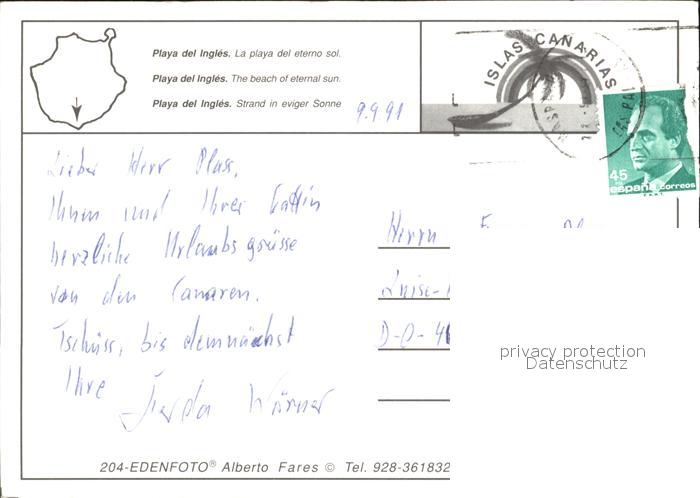 Playa del Inglés. La playa del eterno sol.
Playa del Inglés. The beach of eternal sun.
Playa del Inglés. Strand in eviger Sonne
9.9.91
ISLAS CANARIAS
45
españa correos
Lieber Herr
Ihnen und Ihrer Gattin
herzliche Urlaubsgrüsse
von den Canaren.
Tschüss, bis demnächst
Ihre
Gerda Wörner
Herrn
Luise-
D-O-
privacy protection
Datenschutz
204-EDENFOTO® Alberto Fares © Tel. 928-361832